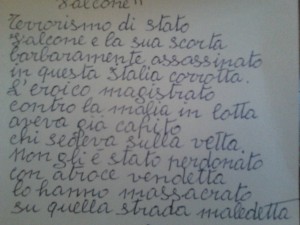 Falcone"
Terrorismo di stato
Falcone e la sua scorta
barbaramente assassinato
in questa Italia corrotta.
L'eroico magistrato
contro la mafia in lotta
aveva già capito
chi sedeva sulla vetta.
Non gli è stato perdonato
con atroce vendetta
lo hanno massacrato
su quella strada maledetta